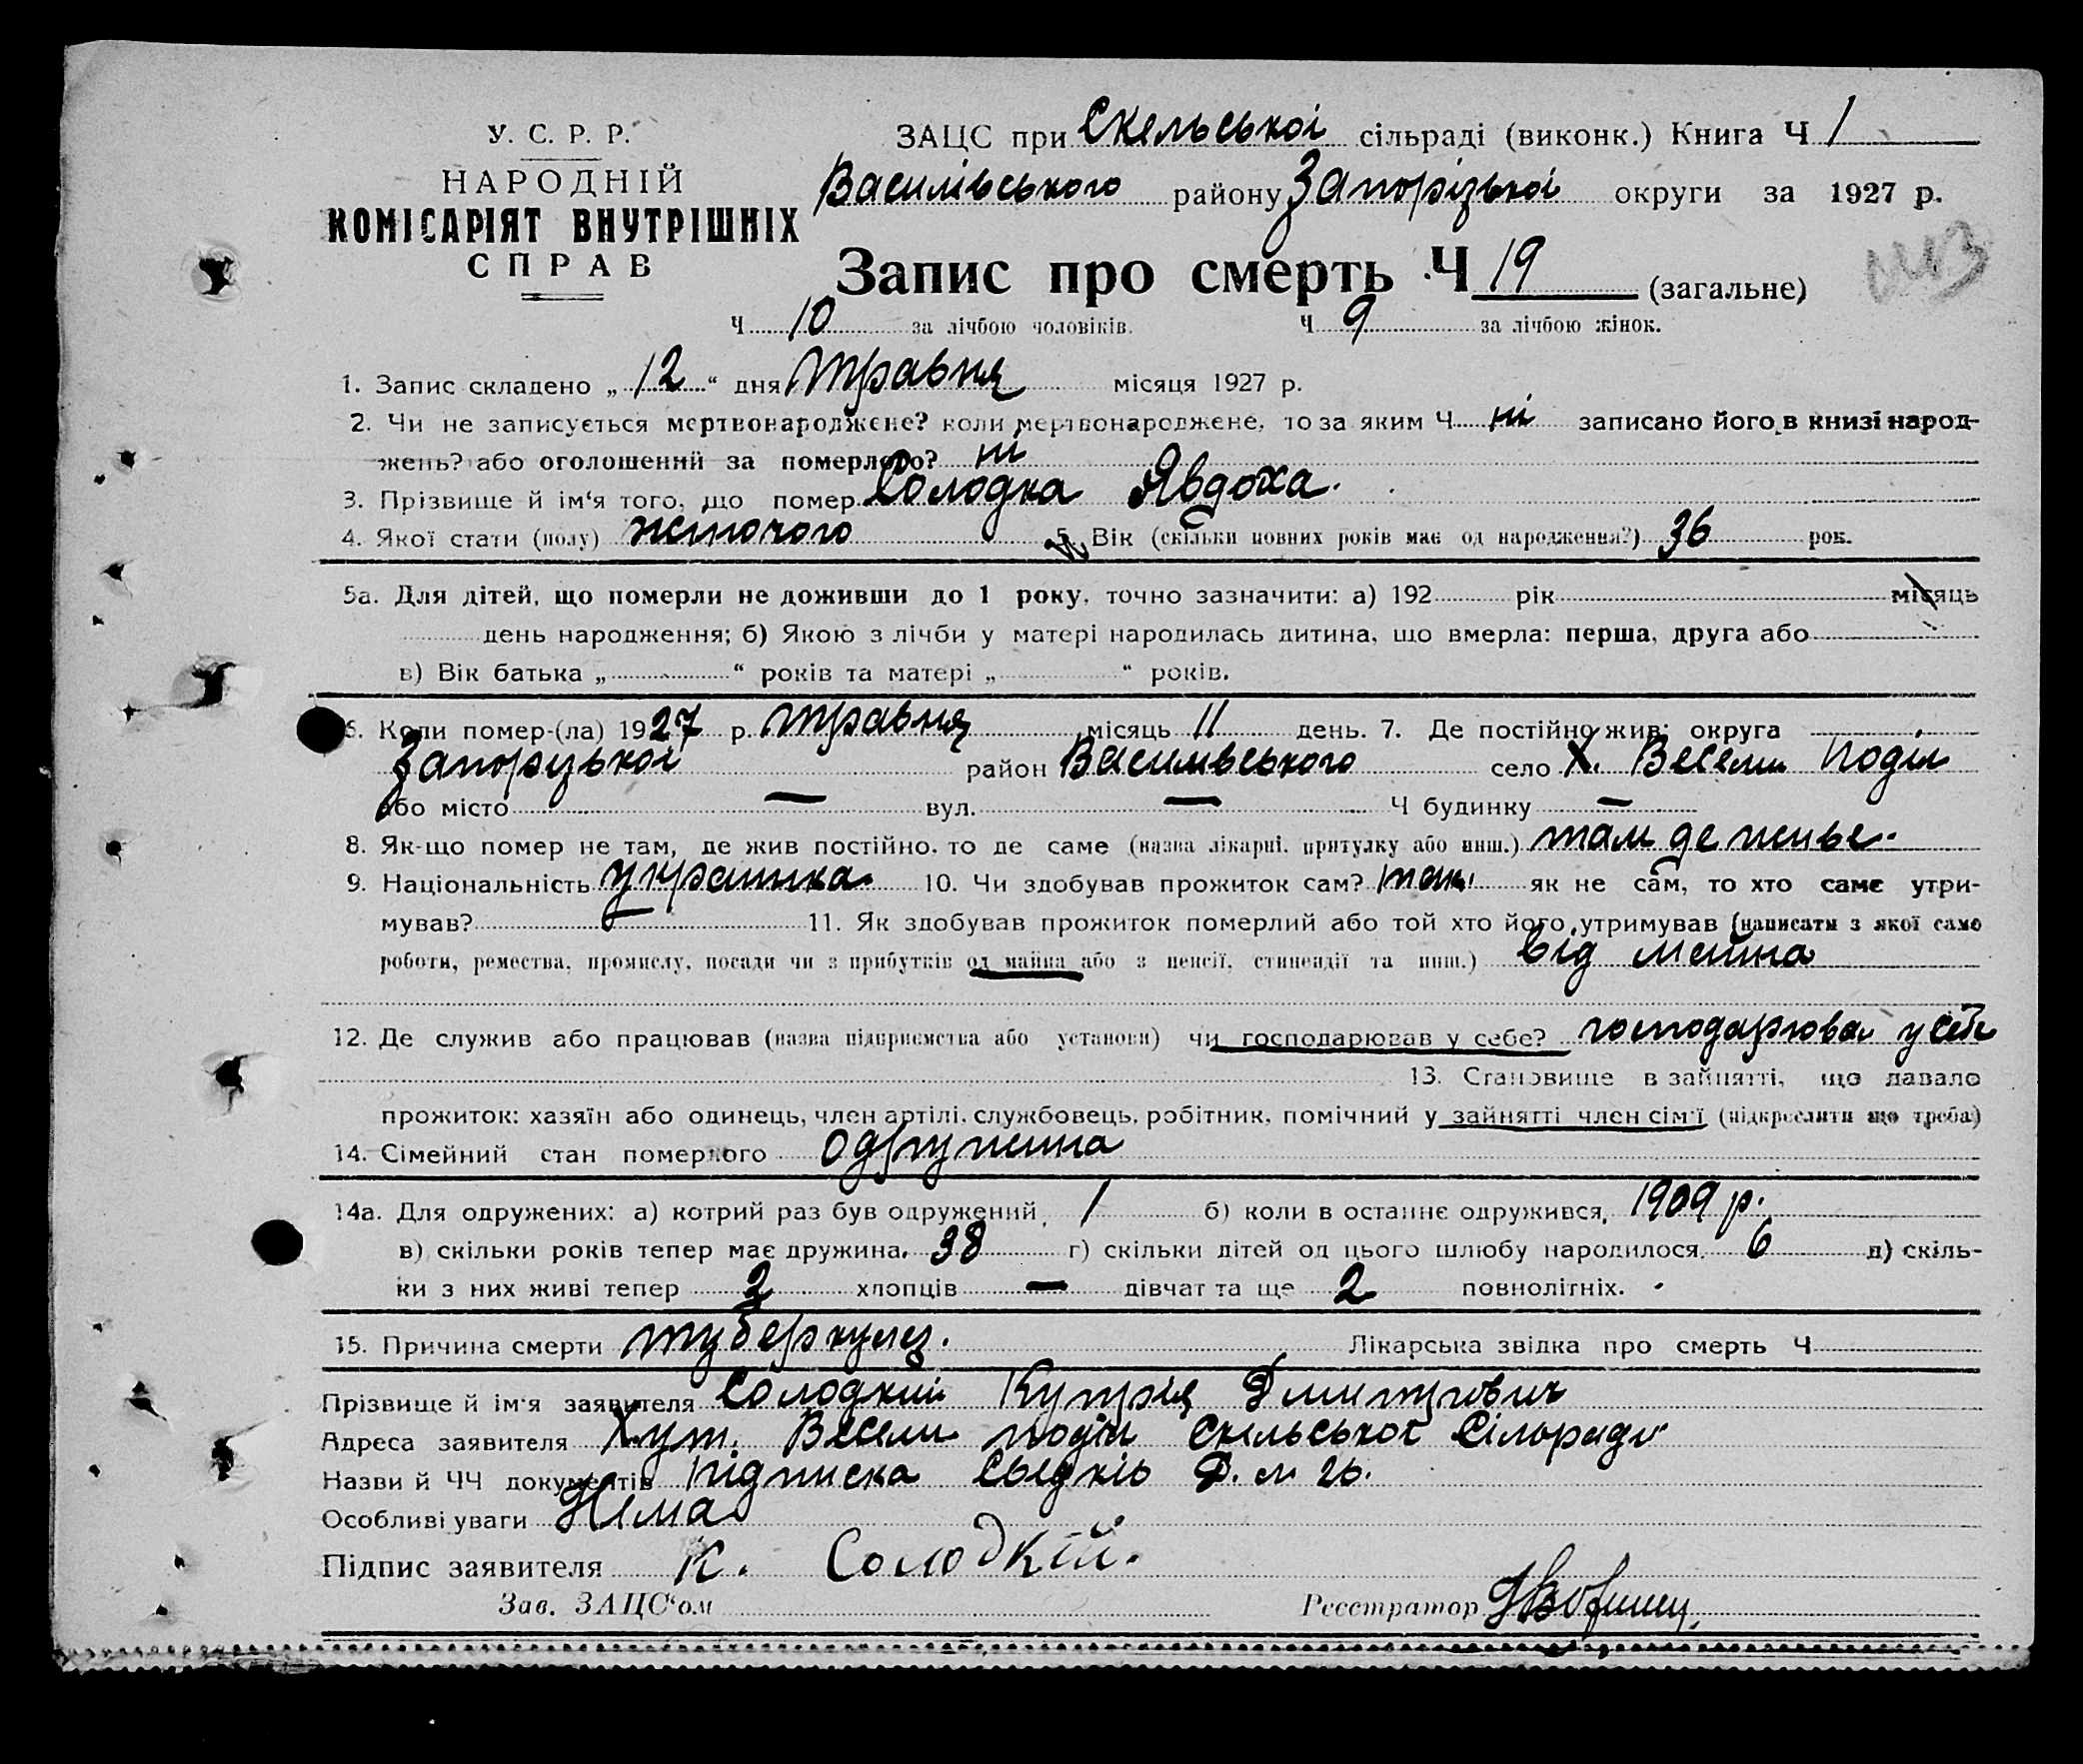 У. С. Р. Р.
НАРОДНІЙ
КОМІСАРІЯТ ВНУТРІШНІХ
СПРАВ
ЗАЦС при Скельської сільраді (виконк.) Книга Ч 1
Василівського району Запорізької округи за 1927 р.
Запис про смерть Ч 19 (загальне)
Ч 10 за лічбою чоловіків. Ч 9 за лічбою жінок.
1. Запис складено „ 12 “ дня травня місяця 1927 р.
2. Чи не записується мертвонароджене? коли мертвонароджене, то за яким Ч ні записано його в книзі народ-
жень? або оголошений за померлого? ні
3. Прізвище й ім'я того, що помер Солодка Явдоха.
4. Якої стати (полу) жіночого 5. Вік (скільки повних років має од народження?) 36 рок.
5а. Для дітей, що померли не доживши до 1 року, точно зазначити: а) 192 рік місяць
день народження; б) Якою з лічби у матері народилась дитина, що вмерла: перша, друга або
в) Вік батька „ “ років та матері „ “ років.
6. Коли помер-(ла) 1927 р. травня місяць 11 день. 7. Де постійно жив: округа
Запорізької район Василівського село Х. Весели Поділ
або місто — вул. — Ч будинку —
8. Як-що помер не там, де жив постійно, то де саме (назва лікарні, притулку або инш.) там де живе.
9. Національність українка 10. Чи здобував прожиток сам? так як не сам, то хто саме утри-
мував? 11. Як здобував прожиток померлий або той хто його утримував (написати з якої само
роботи, ремества, промислу, посади чи з прибутків од майна або з пенсії, стипендії та инш.) від майна
12. Де служив або працював (назва підприємства або установи) чи господарював у себе? господарював у себе
13. Становище в зайнятті, що давало
прожиток: хазяїн або одинець, член артілі, службовець, робітник, помічний у зайнятті член сім'ї (підкреслити що треба)
14. Сімейний стан померлого одружена
14а. Для одружених: а) котрий раз був одружений, 1 б) коли в останнє одружився, 1909 р.
в) скільки років тепер має дружина. 38 г) скільки дітей од цього шлюбу народилося. 6 д) скіль-
ки з них живі тепер 2 хлопців — дівчат та ще 2 повнолітніх.
15. Причина смерти туберкулез. Лікарська звідка про смерть Ч
Прізвище й ім'я заявителя Солодкий Купрій Дмитрович
Адреса заявителя Хут. Весели поділ Скельської Сільради
Назви й ЧЧ документів Підписка Свідків
Особливі уваги Нема
Підпис заявителя К. Солодкій.
Зав. ЗАЦС'ом Реєстратор